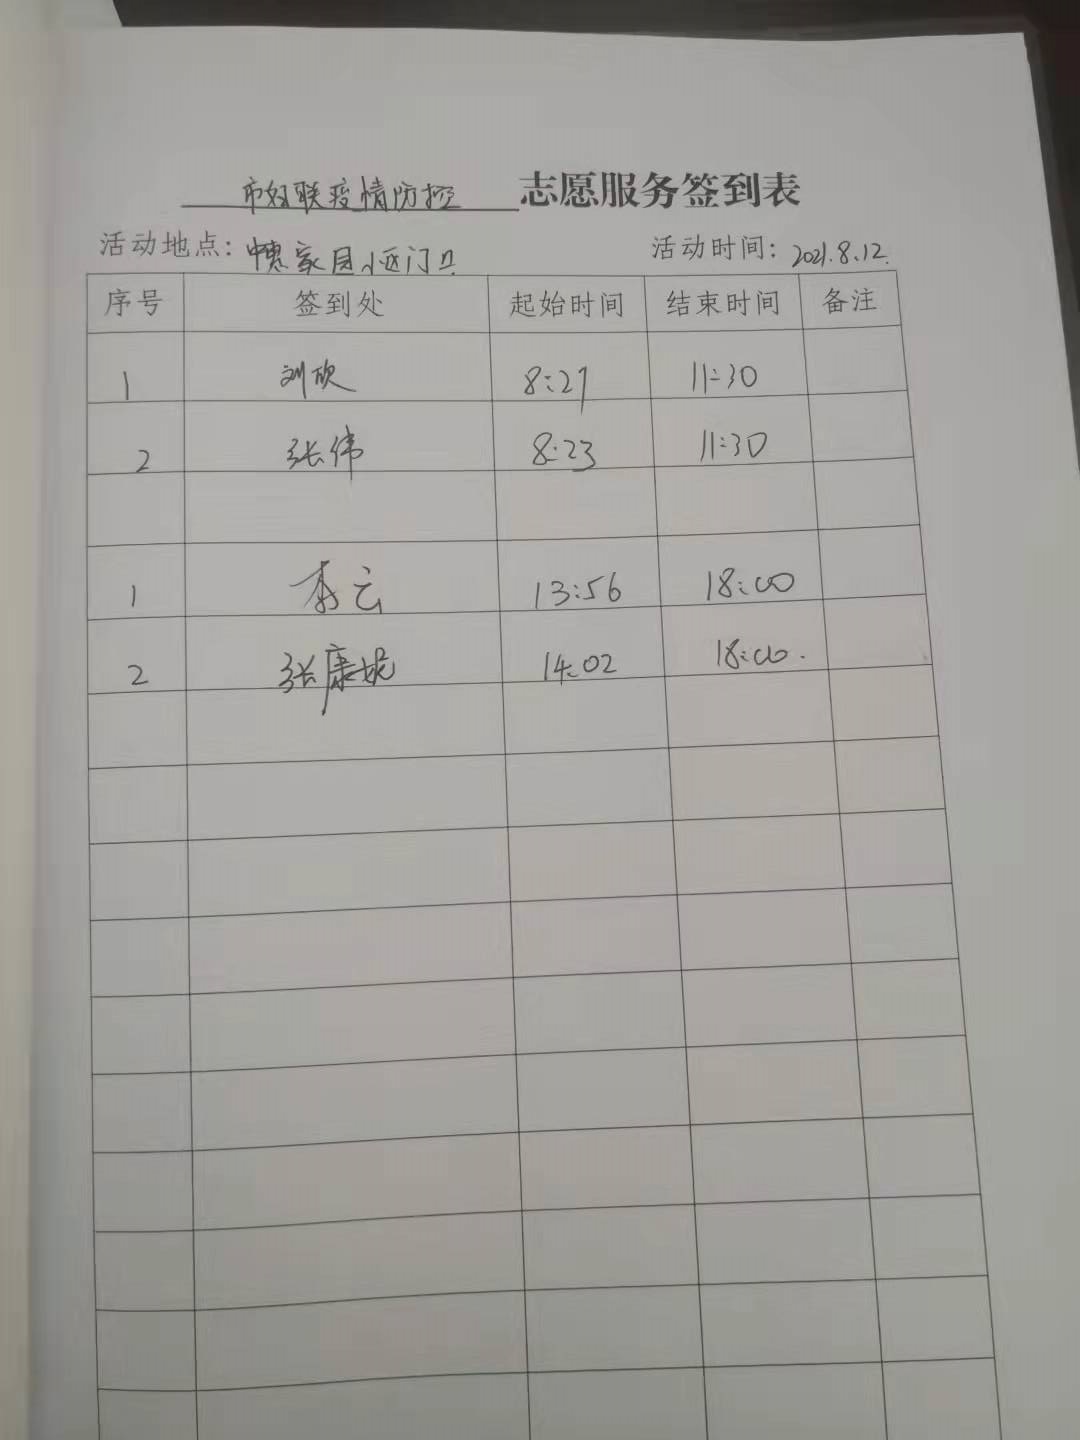 市妇联疫情防控 志愿服务签到表
活动地点: 中惠家园小区门卫 活动时间: 2021.8.12.
序号 签到处 起始时间 结束时间 备注
1 刘欣 8:27 11:30
2 张伟 8:23 11:30
1 李云 13:56 18:00
2 张康妮 14:02 18:00.